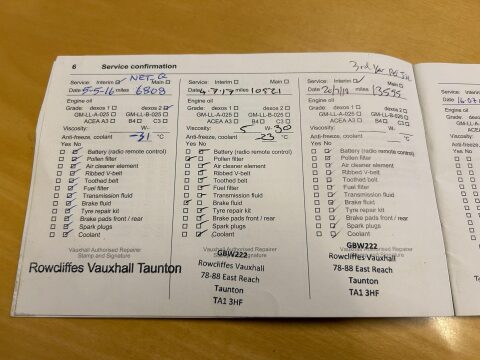 6 Service confirmation
Service: Interim Main
Date 5-5-16 miles 6808
Engine oil
Grade: dexos 1 dexos 2
GM-LL-A-025 GM-LL-B-025
ACEA A3 B4 C3
Viscosity: W-
Anti-freeze, coolant -31 °C
Yes No
Battery (radio remote control)
Pollen filter
Air cleaner element
Ribbed V-belt
Toothed belt
Fuel filter
Transmission fluid
Brake fluid
Tyre repair kit
Brake pads front / rear
Spark plugs
Coolant
Vauxhall Authorised Repairer
Stamp and Signature
Rowcliffes Vauxhall Taunton
Service: Interim Main
Date 4.7.17 miles 10521
Engine oil
Grade: dexos 1 dexos 2
GM-LL-A-025 GM-LL-B-025
ACEA A3 B4 C3
Viscosity: 5 W- 30
Anti-freeze, coolant -23 °C
Yes No
Battery (radio remote control)
Pollen filter
Air cleaner element
Ribbed V-belt
Toothed belt
Fuel filter
Transmission fluid
Brake fluid
Tyre repair kit
Brake pads front / rear
Spark plugs
Coolant
Vauxhall Authorised Repairer
GBW222
Rowcliffes Vauxhall
78-88 East Reach
Taunton
TA1 3HF
3rd
Service: Interim Main
miles 13595
Engine oil
Grade: dexos 1 dexos 2
GM-LL-A-025 GM-LL-B-025
ACEA A3 B4 C3
Viscosity: W-
Anti-freeze, coolant °C
Yes No
Battery (radio remote control)
Pollen filter
Air cleaner element
Ribbed V-belt
Toothed belt
Fuel filter
Transmission fluid
Brake fluid
Tyre repair kit
Brake pads front / rear
Spark plugs
Coolant
Vauxhall Authorised Repairer
GBW222
Rowcliffes Vauxhall
78-88 East Reach
Taunton
TA1 3HF